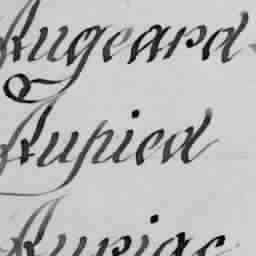 Augeard
Aupied